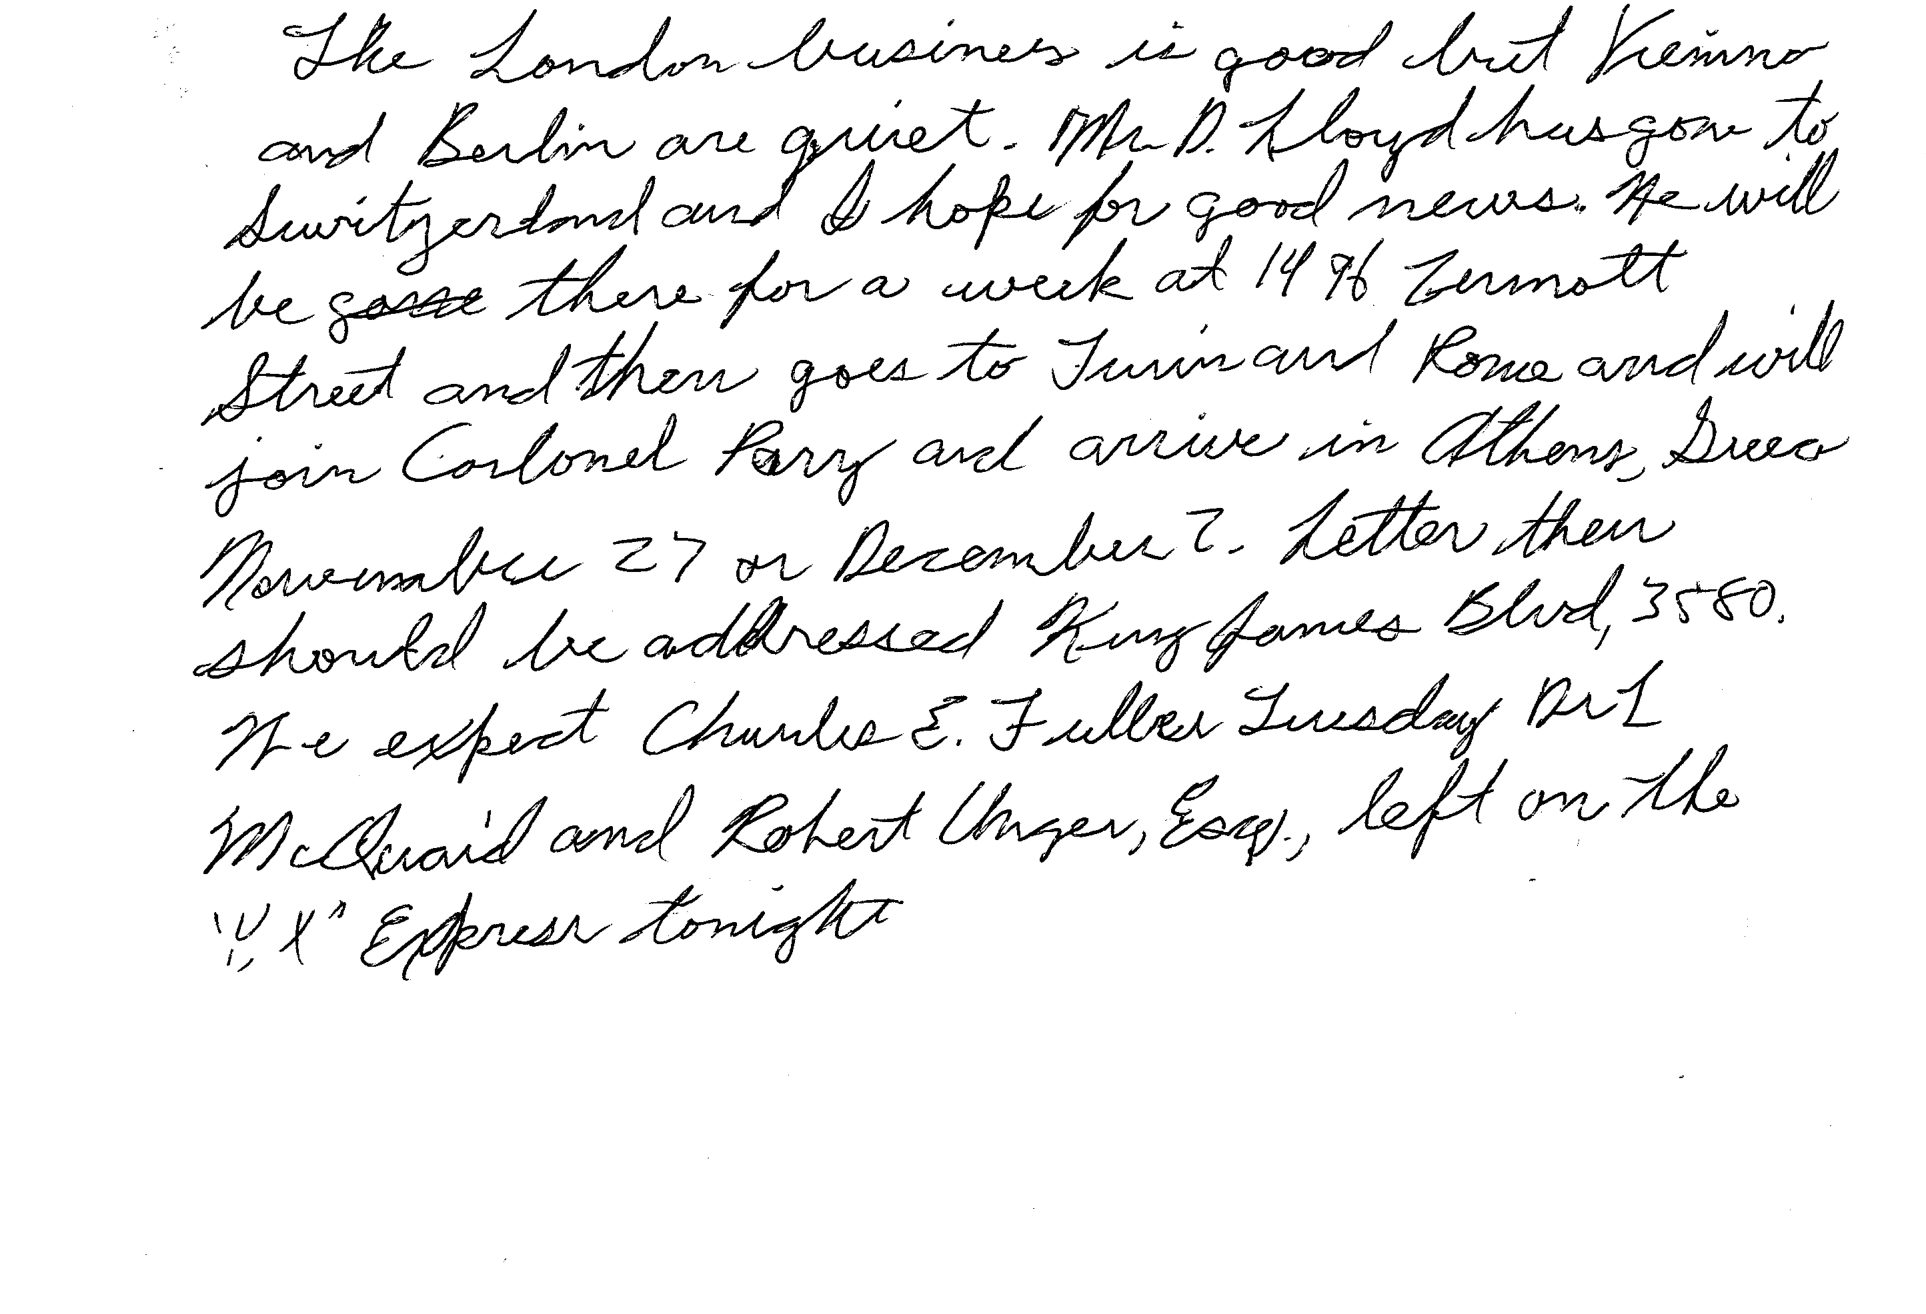 The London business is good but Vienna
and Berlin are quiet. Mr. D. Lloyd has gone to
Switzerland and I hope for good news. He will
be gone there for a week at 1496 Zermott
Street and then goes to Turin and Rome and will
join Corlonel Parry and arrive in Athens, Greece
November 27 or December 2. Letter then
should be addressed King James Blvd, 3580.
We expect Charles E. Fuller Tuesday Dr L
McQuaid and Robert Unger, Esq., left on the
X" Express tonight